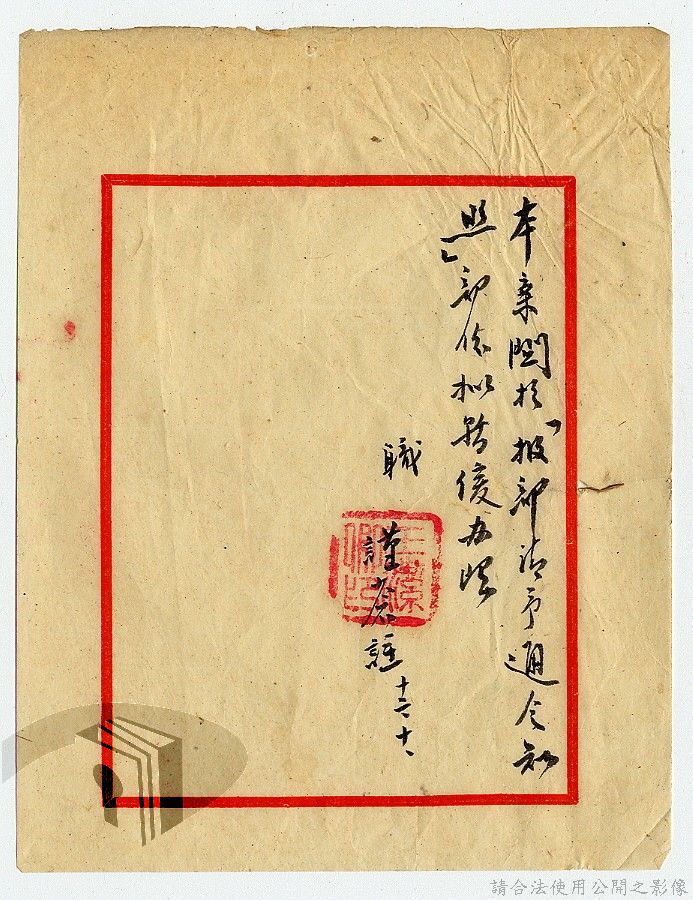 本案關於「報部請予通令知
照」部份擬暫後办理
職
謹簽註 十二、十、
請合法使用公開之影像